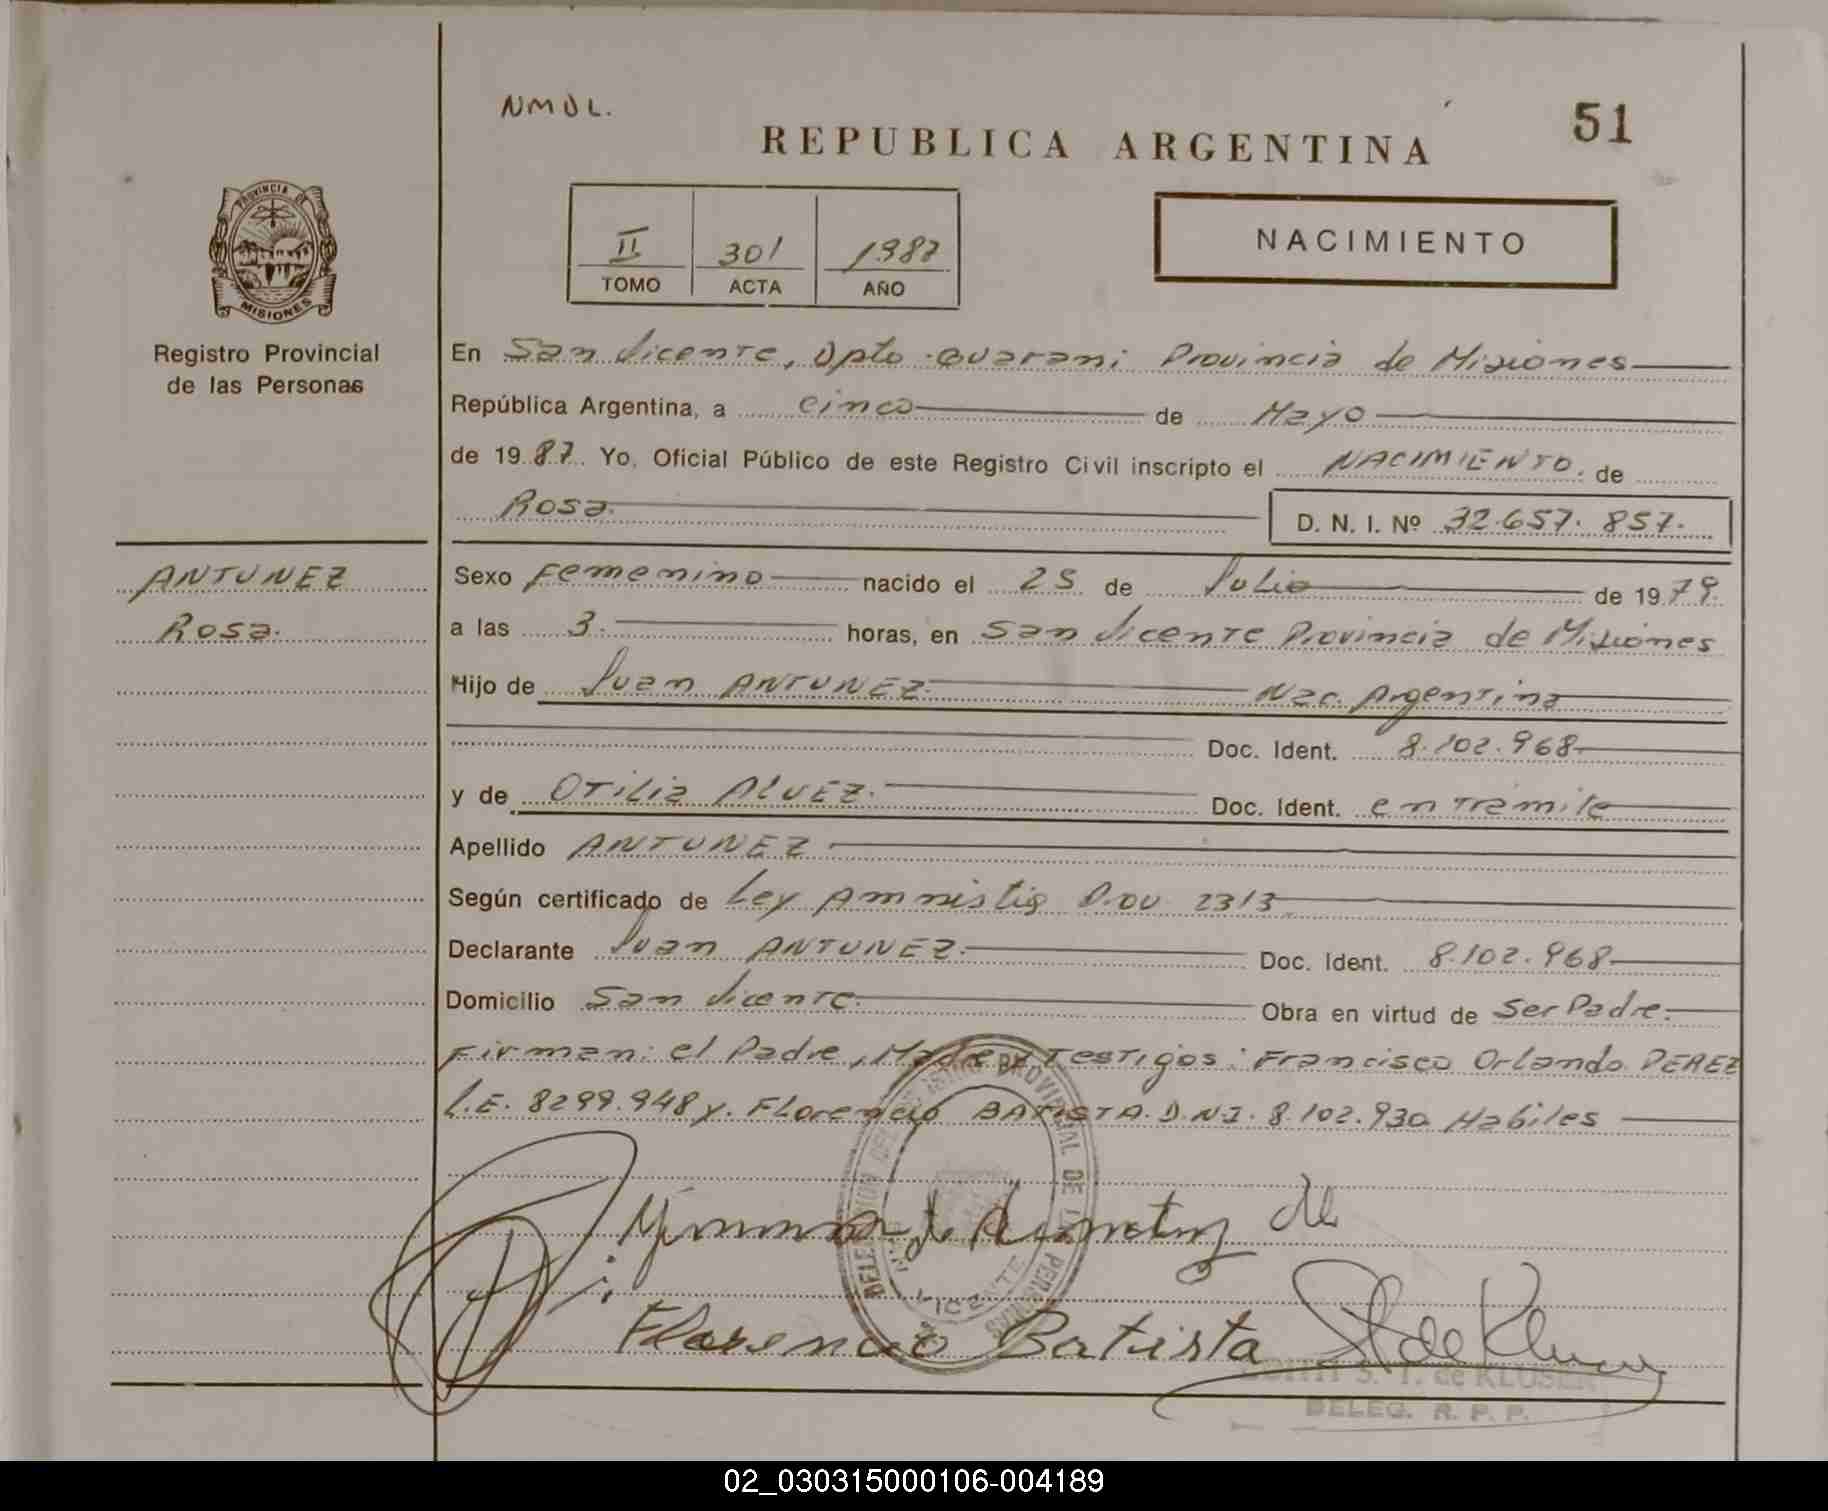 NMDL.
51
REPUBLICA ARGENTINA
PROVINCIA DE
MISIONES
II 301 1987
TOMO ACTA AÑO
NACIMIENTO
Registro Provincial
de las Personas
En San Vicente, Dpto. Guarani Provincia de Misiones
República Argentina, a cinco de Mayo
de 1987 Yo, Oficial Público de este Registro Civil inscripto el NACIMIENTO. de
Rosa. D. N. I. Nº 32.657.857.
ANTUNEZ
Rosa.
Sexo femenino nacido el 25 de Julio de 1979.
a las 3. horas, en San Vicente Provincia de Misiones
Hijo de Juan ANTUNEZ. Nac. Argentina
Doc. Ident. 8.102.968
y de Otilia Alvez. Doc. Ident. en tramite
Apellido ANTUNEZ
Según certificado de Ley Amnistia 2313
Declarante Juan ANTUNEZ. Doc. Ident. 8.102.968
Domicilio San Vicente. Obra en virtud de Ser Padre.
Firman: el Padre, Madre y Testigos: Francisco Orlando PEREZ
L.E. 8299.948 y. Florencio BATISTA. D.N.I. 8.102.930 Habiles
de
Florencio Batista
S. T. de KLUSER
DELEG. R. P. P.
02_030315000106-004189